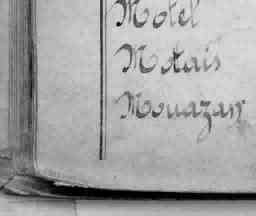 Motel
Motais
Mouazan